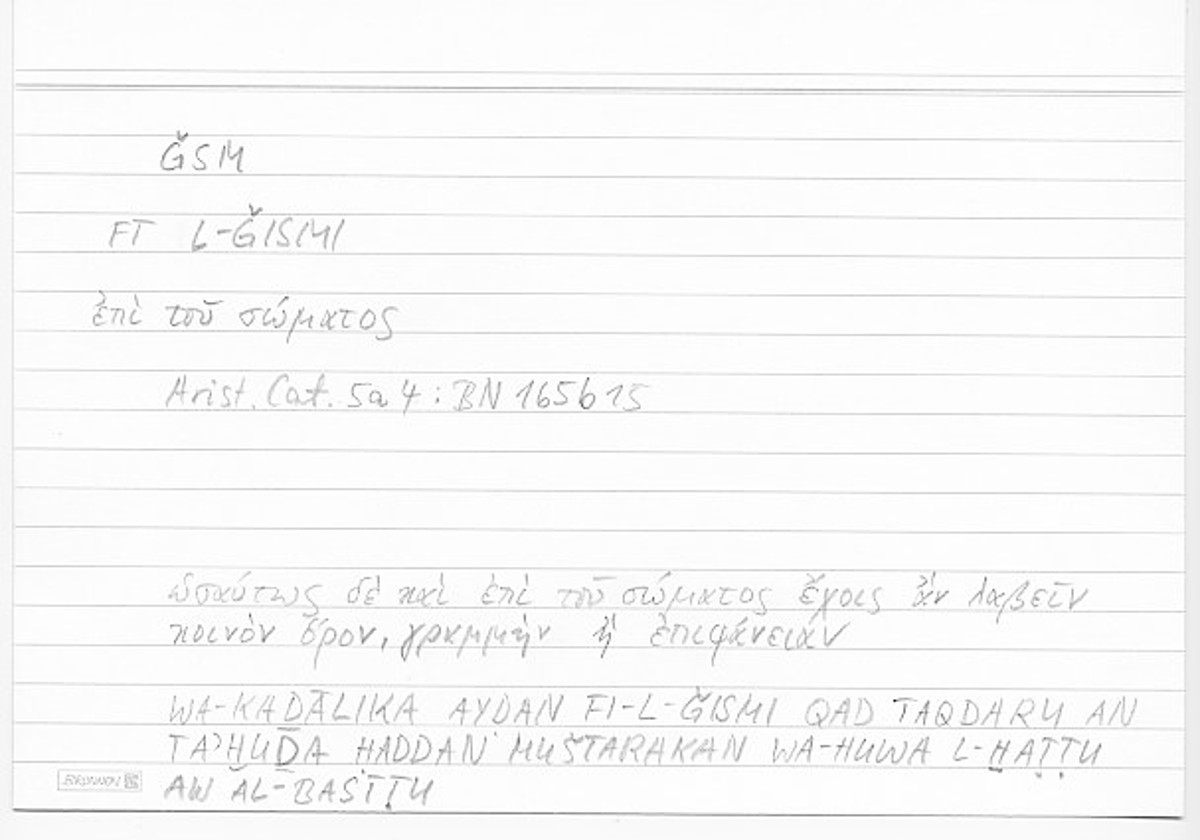 ǦSM
FĪ L-ǦISMI
ἐπὶ τοῦ σώματος
Arist. Cat. 5a4 : BN 165b15
ὡσαύτως δὲ καὶ ἐπὶ τοῦ σώματος ἔχοις ἂν λαβεῖν
κοινὸν ὅρον, γραμμὴν ἢ ἐπιφάνειαν
WA-KAḎĀLIKA AYḌAN FI-L-ǦISMI QAD TAQDARU AN
TAʾḪUḎA ḤADDAN MUŠTARAKAN WA-HUWA L-ḪAṬṬU
AW AL-BASĪṬU
BRUNNEN